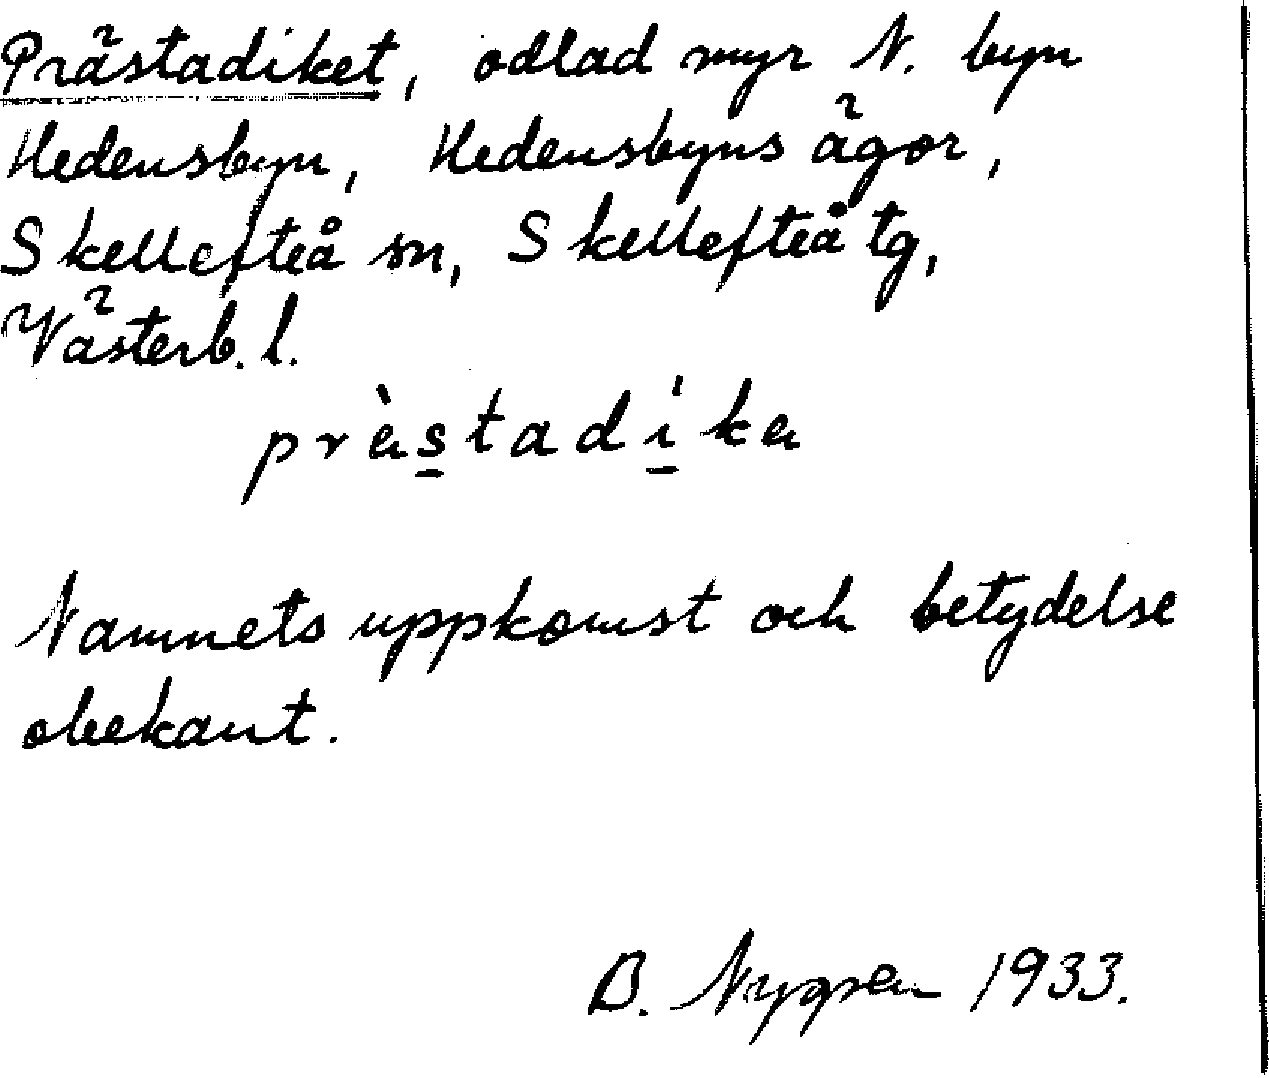 Prästadiket, odlad myr N. byn
Hedensbyn, Hedensbyns ägor,
Skellefteå sn, Skellefteå tg,
Västerb. l.
prästadika
Namnets uppkomst och betydelse
obekant.
B. Nygren 1933.